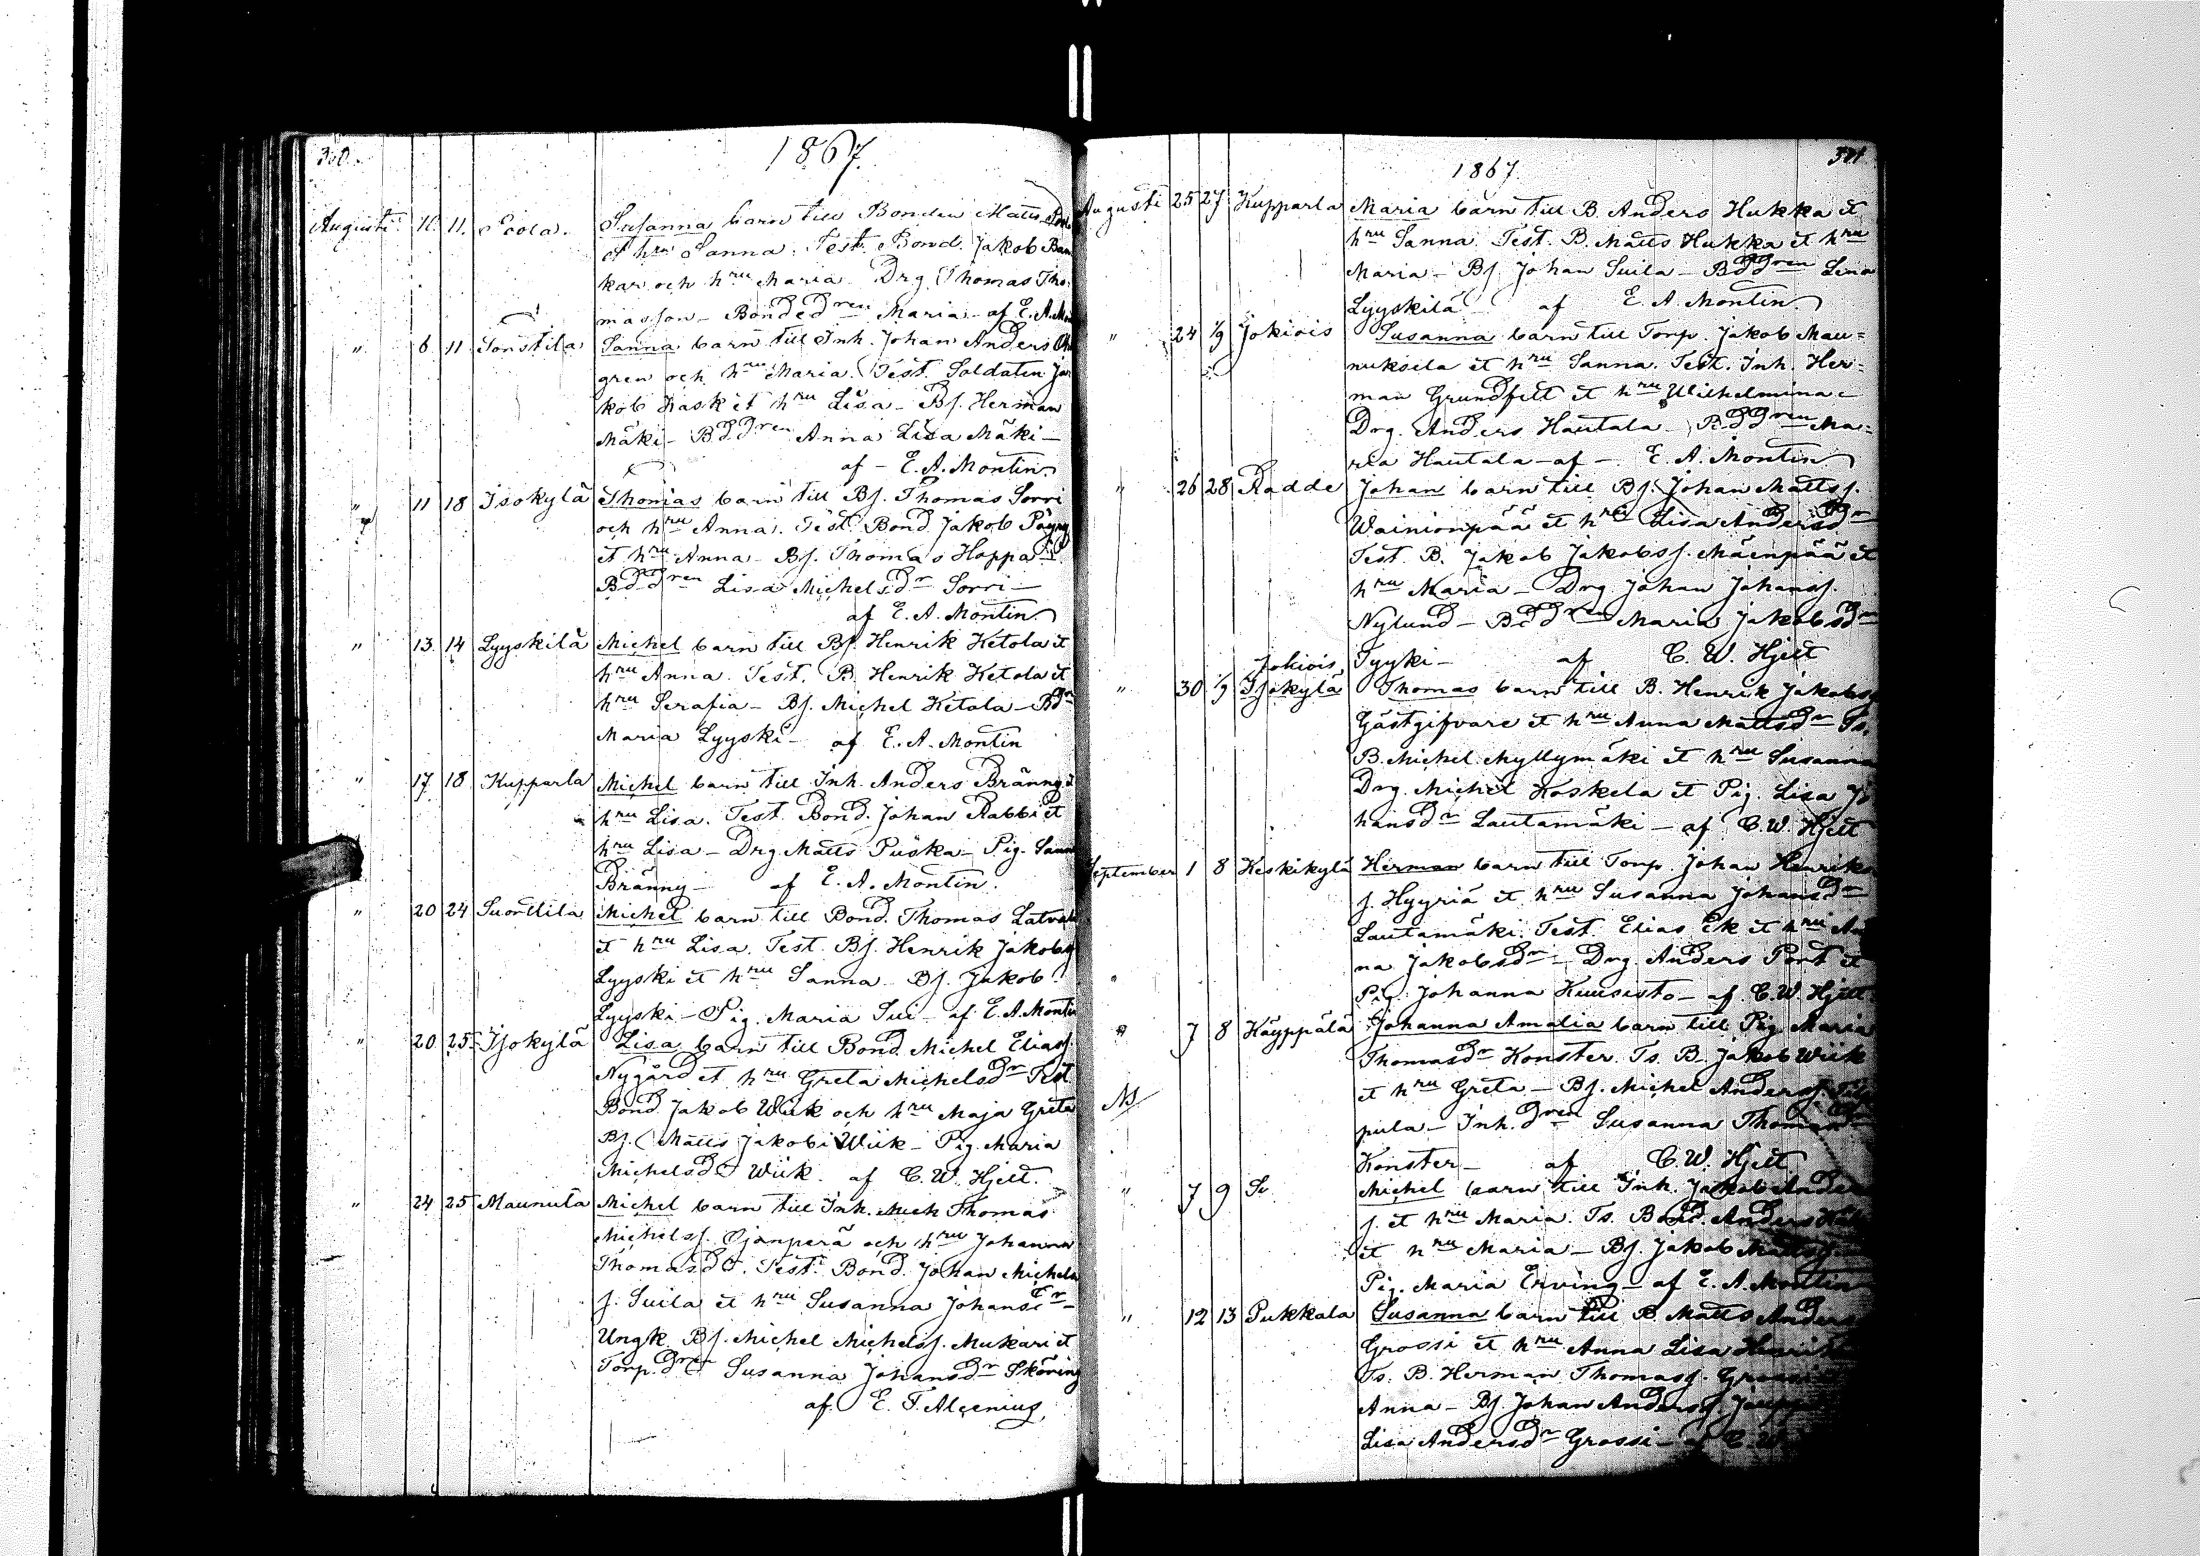 1867.
Augusti 10. 11. Susanna barn till Bonden Matts
et hru Sanna. Test. Bond. Jakob
kar och hru Maria Drg. Thomas Tho-
masson - Bonded dren Maria - af E. A.
" 6 11 Tonstila Sanna barn till Inh. Johan Anders
gren och hru Maria. Test. Soldaten Ja-
kob Kask et hru Lisa - Bs. Herman
Mäki - BdDren Anna Lisa Mäki -
af - E. A. Montin
" 11 18 Isokylä Thomas barn till Bs. Thomas Sorri
och hru Anna. Test. Bond Jakob
et hru Anna - Bs. Thomas Hoppa
BdDren Lisa Michelsdr Sorri -
af E. A. Montin
" 13 14 Lyyskilä Michel barn till Bs. Henrik Ketola et
hru Anna. Test. B. Henrik Ketola et
hru Serafia - Bs. Michel Ketola - Bdr
Maria Lyyski - af E. A. Montin
" 17 18 Kupparla Michel barn till Inh. Anders Bränny
hru Lisa. Test. Bond. Johan Rabbi et
hru Lisa - Drg Matts Puska - Pig. Sanna
Bränny - af E. A. Montin.
" 20 24 Suonttila Michel barn till Bond. Thomas
et hru Lisa. Test. Bs. Henrik Jakobs
Lyyski et hru Sanna. Bs. Jakob
Lyyski - Pig. Maria Sui - af E. A. Montin
" 20 25 Isokylä Lisa barn till Bond. Michel Eliass.
Nygård et hru Greta Michelsdr Test
Bond. Jakob Wiik och hru Maja Greta
Bs. Matts Jakobi Wiik - Pig. Maria
Michelsdr Wiik. af C. W. Hjelt.
" 24 25 Maunula Michel barn till Inh. Mich Thomas
Michelss. Ojanperä och hru Johanna
Thomasdr. Test. Bond. Johan Michels
s. Suila et hru Susanna Johansdr -
Ungk. Bs. Michel Michelss. Mukari et
Torp.dren Susanna Johansdr Sköring
af E. F. Alcenius,
1867.
Augusti 25 27 Kupparla Maria barn till B. Anders Hukka et
hru Sanna. Test. B. Matts Hukka et hru
Maria - Bs. Johan Suila - BdDren Lena
Lyyskilä - af E. A. Montin
" 24 1/9 Jokiois Susanna barn till Torp. Jakob Mau=
nuksela et hru Sanna. Test. Inh. Her=
man Grundfelt et hru Wilhelmina -
Drg. Anders Hautala - BdDren Ma=
ria Hautala - af - E. A. Montin
" 26 28 Radde Johan barn till Bs. Johan Mattss.
Wainionpää et hru Lisa Andersdr
Test. B. Jakob Jakobss. Mäenpää et
hru Maria - Drg Johan Johanss.
Nylund - BdDren Maria Jakobsdr
Tyyki - af C. W. Hjelt
Jokiois,
" 30 1/9 Isokylä Thomas barn till B. Henrik Jakobss
Gästgifvare et hru Anna Mattsdr Ts.
B. Michel Myllymäki et hru Susanna
Drg. Michel Koskela et Pig. Lisa Jo
hansdr Lautamäki - af C. W. Hjelt
September 1 8 Keskikylä Herman barn till Torp. Johan Henriks
s. Hyyriä et hru Susanna Johansdr
Lautamäki. Test. Elias Ek et hru An
na Jakobsdr - Drg Anders Pert et
Pig. Johanna Kuusisto - af C. W. Hjelt
" 7 8 Käyppälä Johanna Amalia barn till Pig. Maria
Thomasdr Konster. Ts. B. Jakob Wiik
et hru Greta - Bs. Michel Anderss.
pula - Inh. dren Susanna Thomasdr
Konster - af C. W. Hjelt
" 7 9 Michel barn till Inh. Jakob Anders
s. et hru Maria. Ts. Bond. Anders
et hru Maria - Bs. Jakob Mattss
Pig. Maria Erving - af E. A. Montin
" 12 13 Pukkala Susanna barn till B. Matts Anders
Grossi et hru Anna Lisa Henriks
Ts. B. Herman Thomass. Grossi
Anna - Bs. Johan Anderss.
Lisa Andersdr Grossi - af C. W.